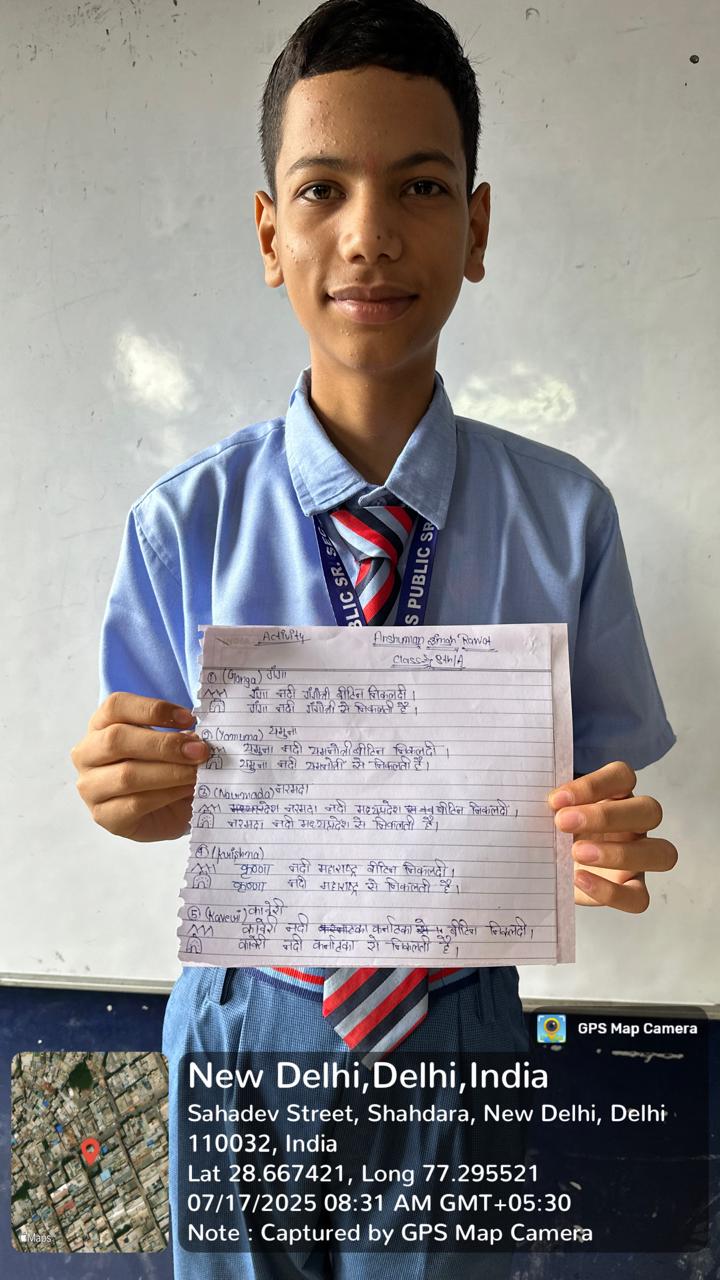 LIC SR. SEC
S PUBLIC SR
Activity
Anshuman Singh Rawat
Class 8th/A
① (Ganga) गंगा
गंगा नदी गंगोत्री बीटिन निकलदी।
गंगा नदी गंगोत्री से निकलती है।
② (Yamuna) यमुना
यमुना नदी यमनोत्री बीटिन निकलदी।
यमुना नदी यमनोत्री से निकलती है।
③ (Narmada) नरमदा
नरमदा नदी मध्यप्रदेश बीटिन निकलदी।
नरमदा नदी मध्यप्रदेश से निकलती है।
④ (krishna)
कृष्णा नदी महाराष्ट्र बीटिन निकलदी।
कृष्णा नदी महाराष्ट्र से निकलती है।
⑤ (Kaveri) कावेरी
कावेरी नदी कर्नाटका बीटिन निकलदी।
कावेरी नदी कर्नाटका से निकलती है।
GPS Map Camera
New Delhi,Delhi,India
Sahadev Street, Shahdara, New Delhi, Delhi
110032, India
Lat 28.667421, Long 77.295521
07/17/2025 08:31 AM GMT+05:30
Note : Captured by GPS Map Camera
Maps